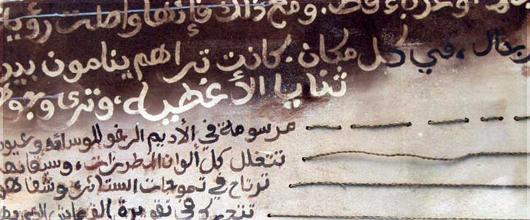 وغرباء فقط. ومع ذلك فإنها واصلت رؤيا
رجال، في كل مكان. كانت تراهم ينامون بين
ثنايا الأغطية، وترى وجو
مرسومة في الأديم الرغو للوسائد، وعيون
تتخلل كل ألوان المطرزات، وسيقانهم
ترتاح في تموجات الستائر، وشفاههم
في